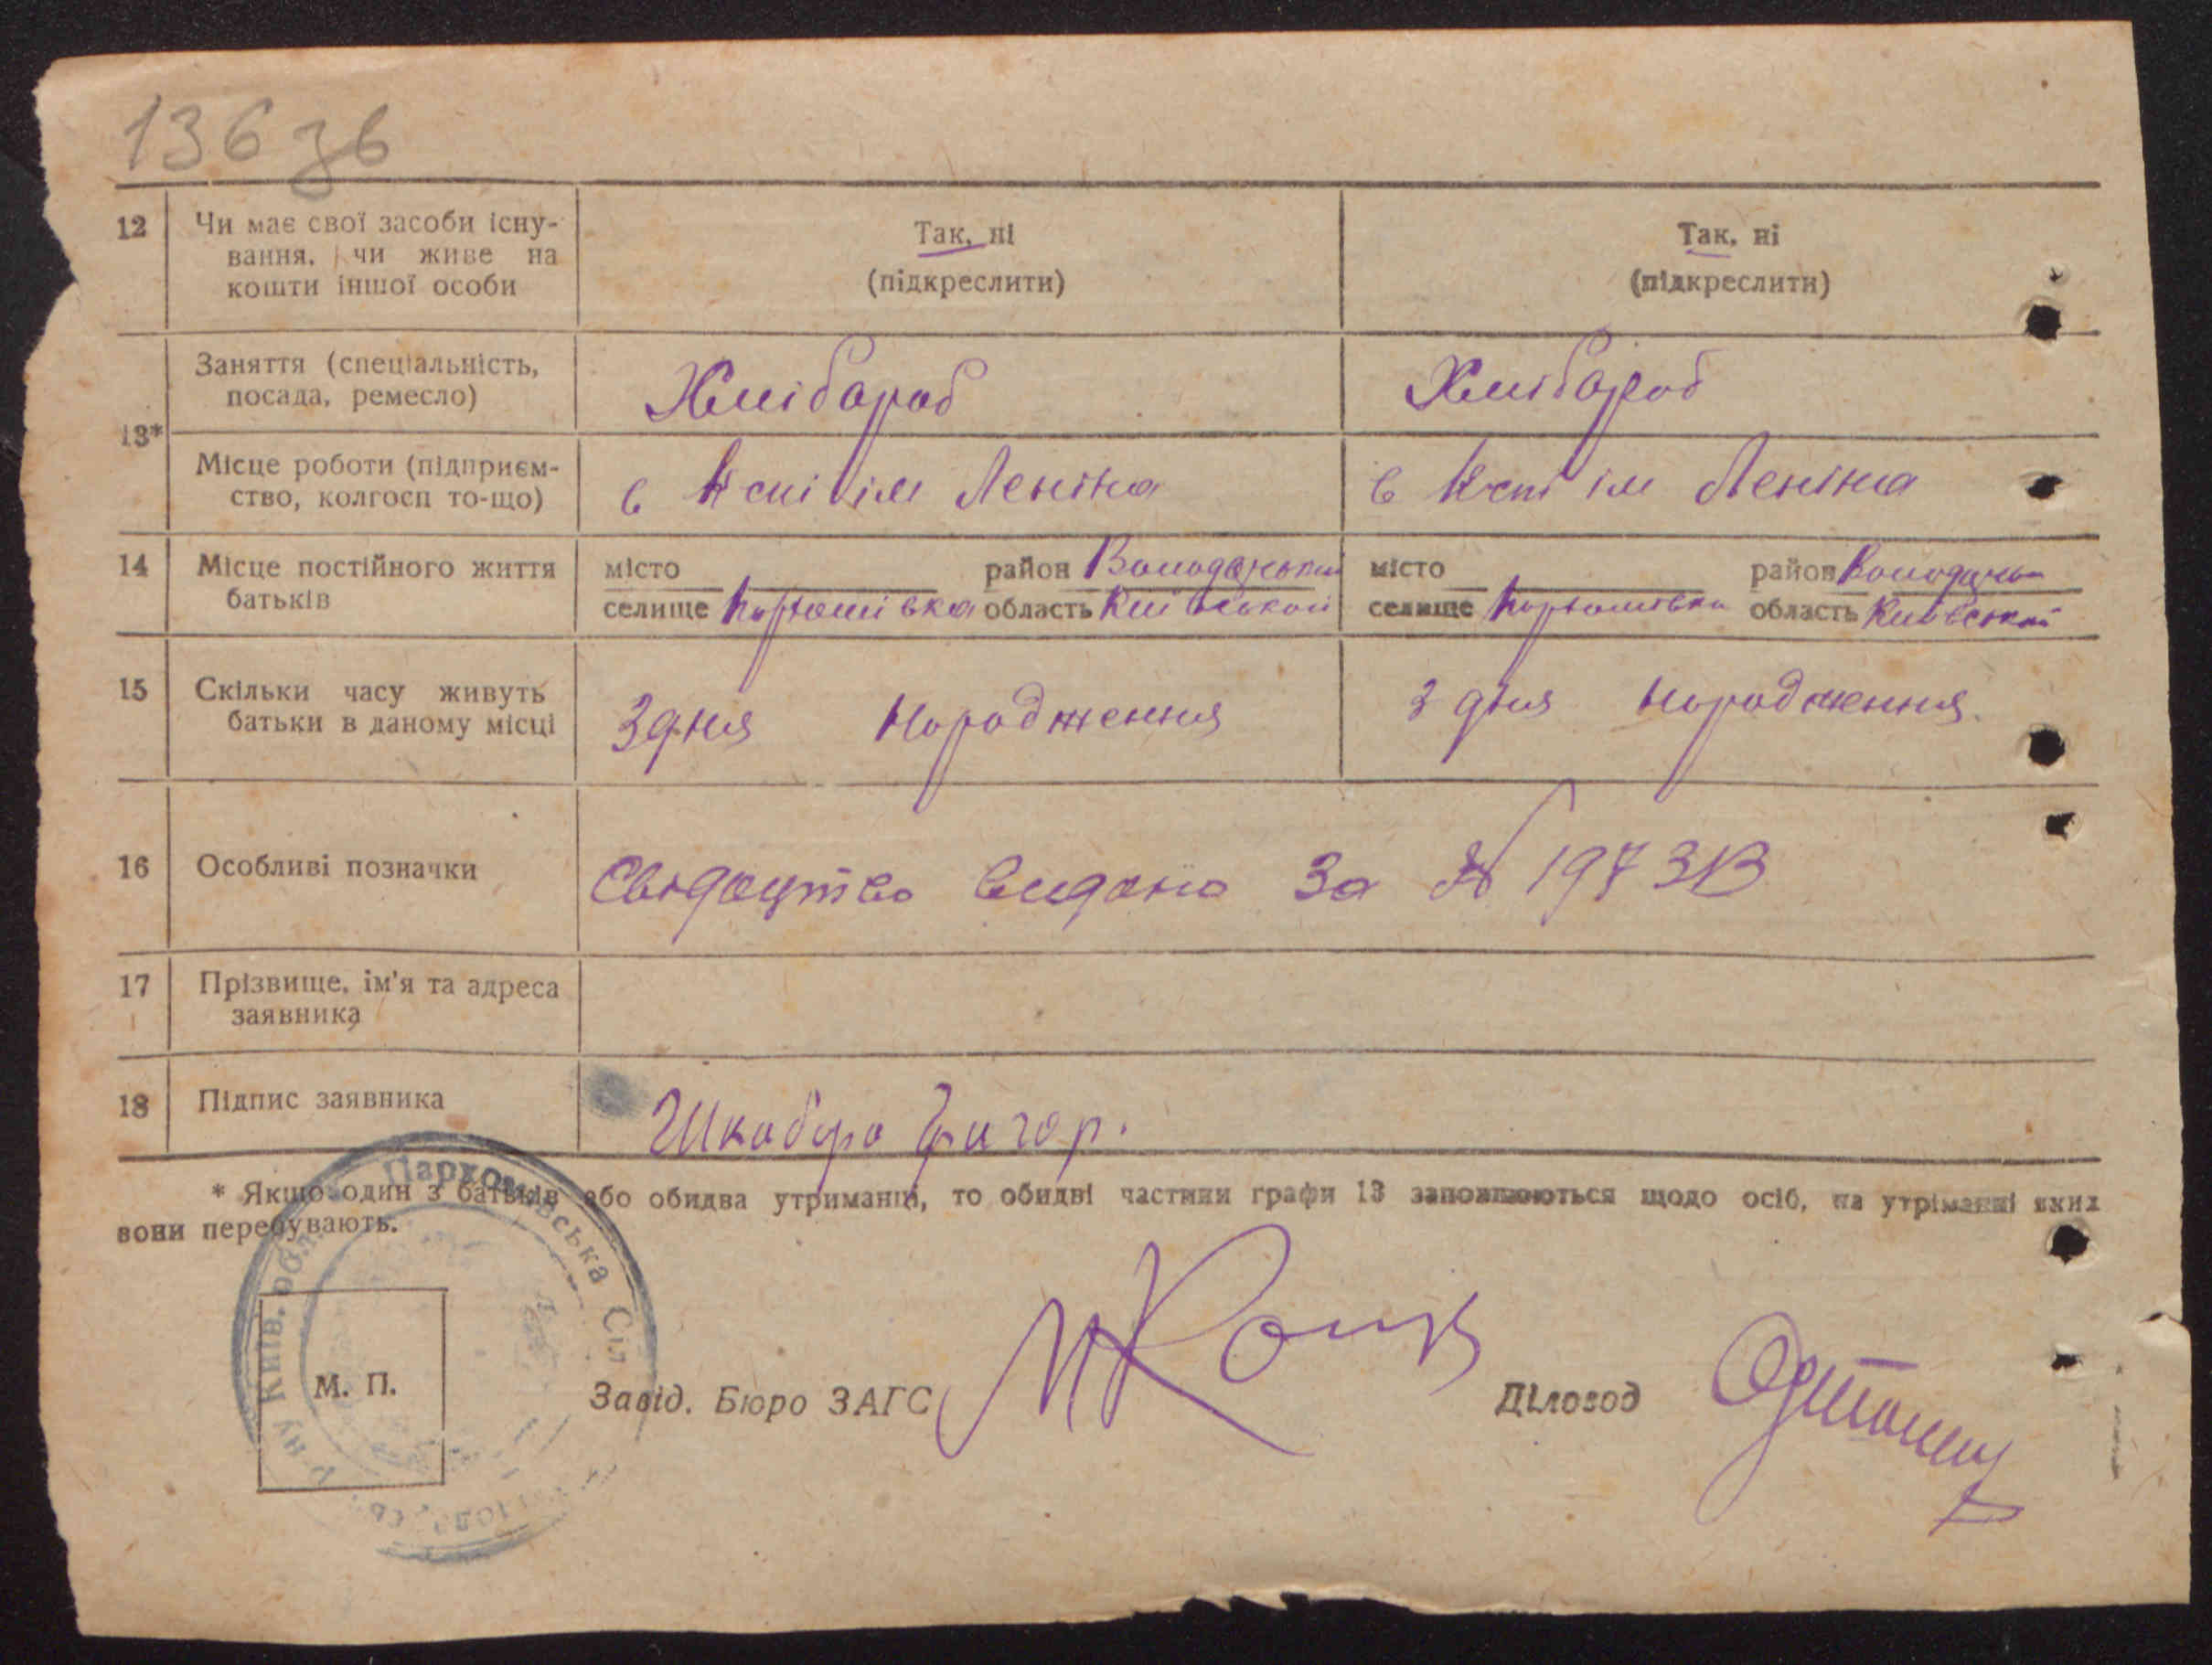 136 зв
12 Чи має свої засоби існу-
вання, чи живе на
кошти іншої особи
Так, ні
(підкреслити)
Так, ні
(підкреслити)
13*
Заняття (спеціальність,
посада, ремесло)
Хлібороб
Хлібороб
Місце роботи (підприєм-
ство, колгосп то-що)
в Кспі ім Леніна
в Кспі ім Леніна
14 Місце постійного життя
батьків
місто район Володарський
селище Пархомівка область Київської
місто район
селище Пархомівка область Київської
15 Скільки часу живуть
батьки в даному місці
З дня народження
З дня народження.
16 Особливі позначки
Свідоцтво видано За № 197 ЗВ
17 Прізвище, ім'я та адреса
заявника
18 Підпис заявника
Шкабура Григор.
* Якщо один з батьків або обидва утриманці, то обидві частини графи 13 заповнюються щодо осіб, на утріманні яких
вони перебувають.
Пархомівська Сіл
Київ. обл.
М. П.
Завід. Бюро ЗАГС
Діловод